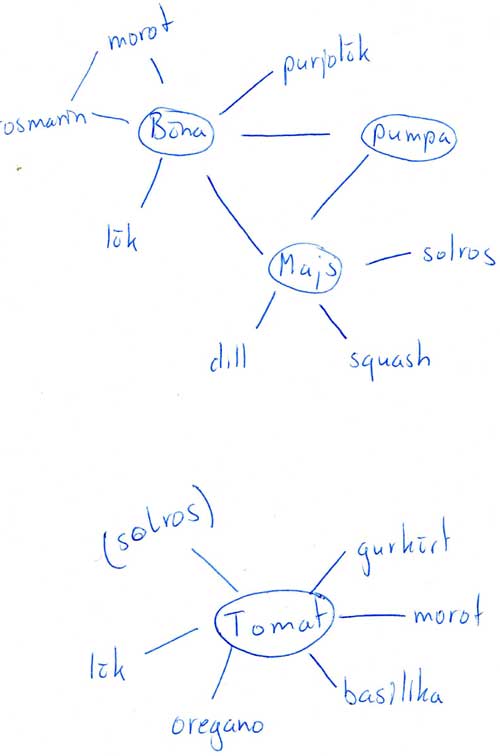 morot
purjolök
rosmarin
Böna
Pumpa
lök
Majs
solros
dill
squash
(solros)
gurkört
Tomat
morot
lök
basilika
oregano